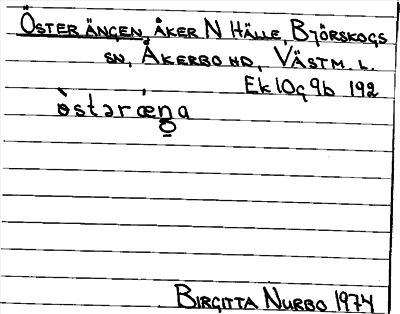 ÖSTER ÄNGEN, ÅKER N HÄLLE, BJÖRSKOGS
SN, ÅKERBO HD, VÄSTM. L.
Ek 10g 9b 192
ö̀stərǽŋa
BIRGITTA NURBO 1974